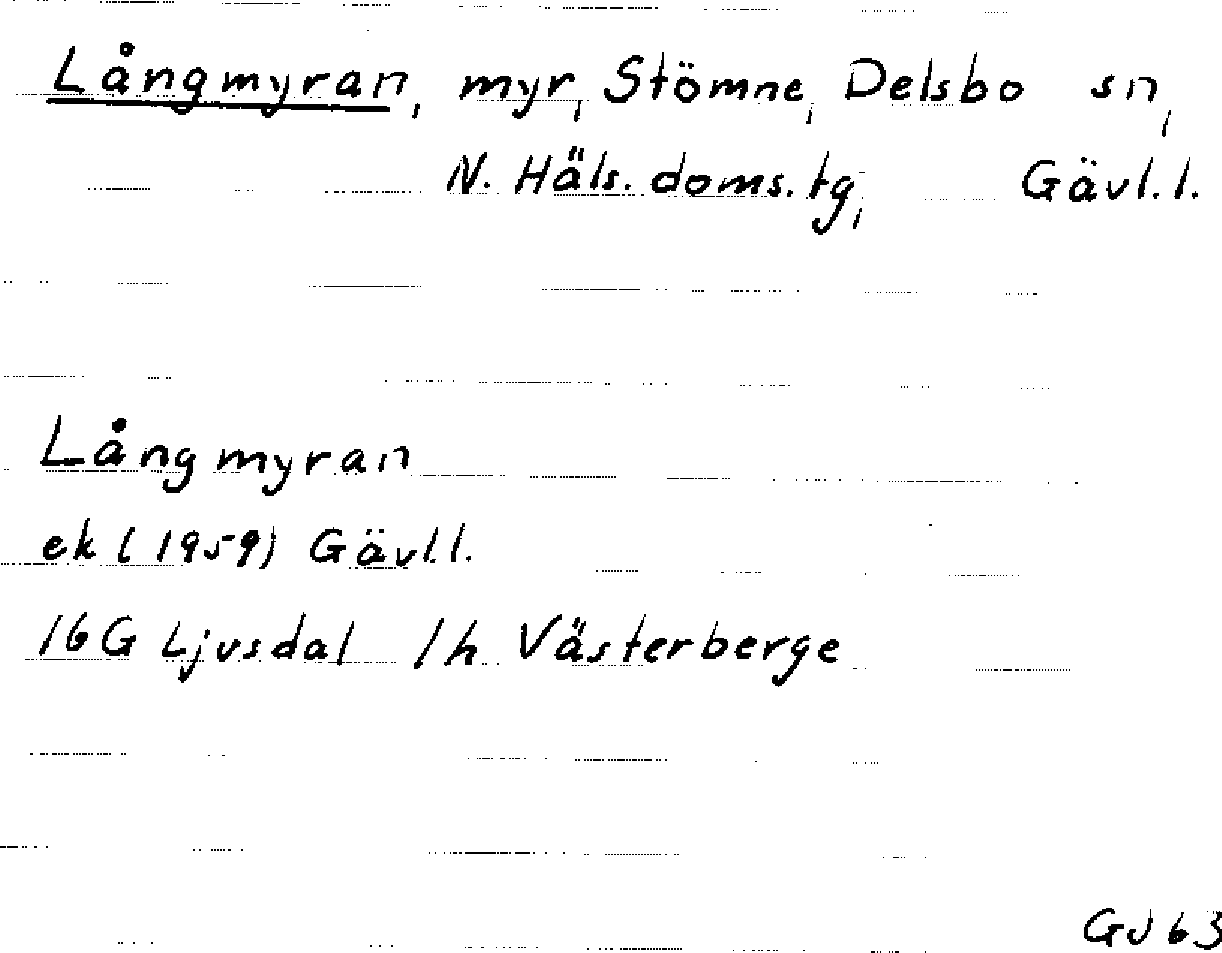 Långmyran, myr, Stömne, Delsbo sn,
N. Häls. doms. tg, Gävl. l.
Långmyran
ek (1959) Gävl. l.
16G Ljusdal 1h Västerberge
GJ 63